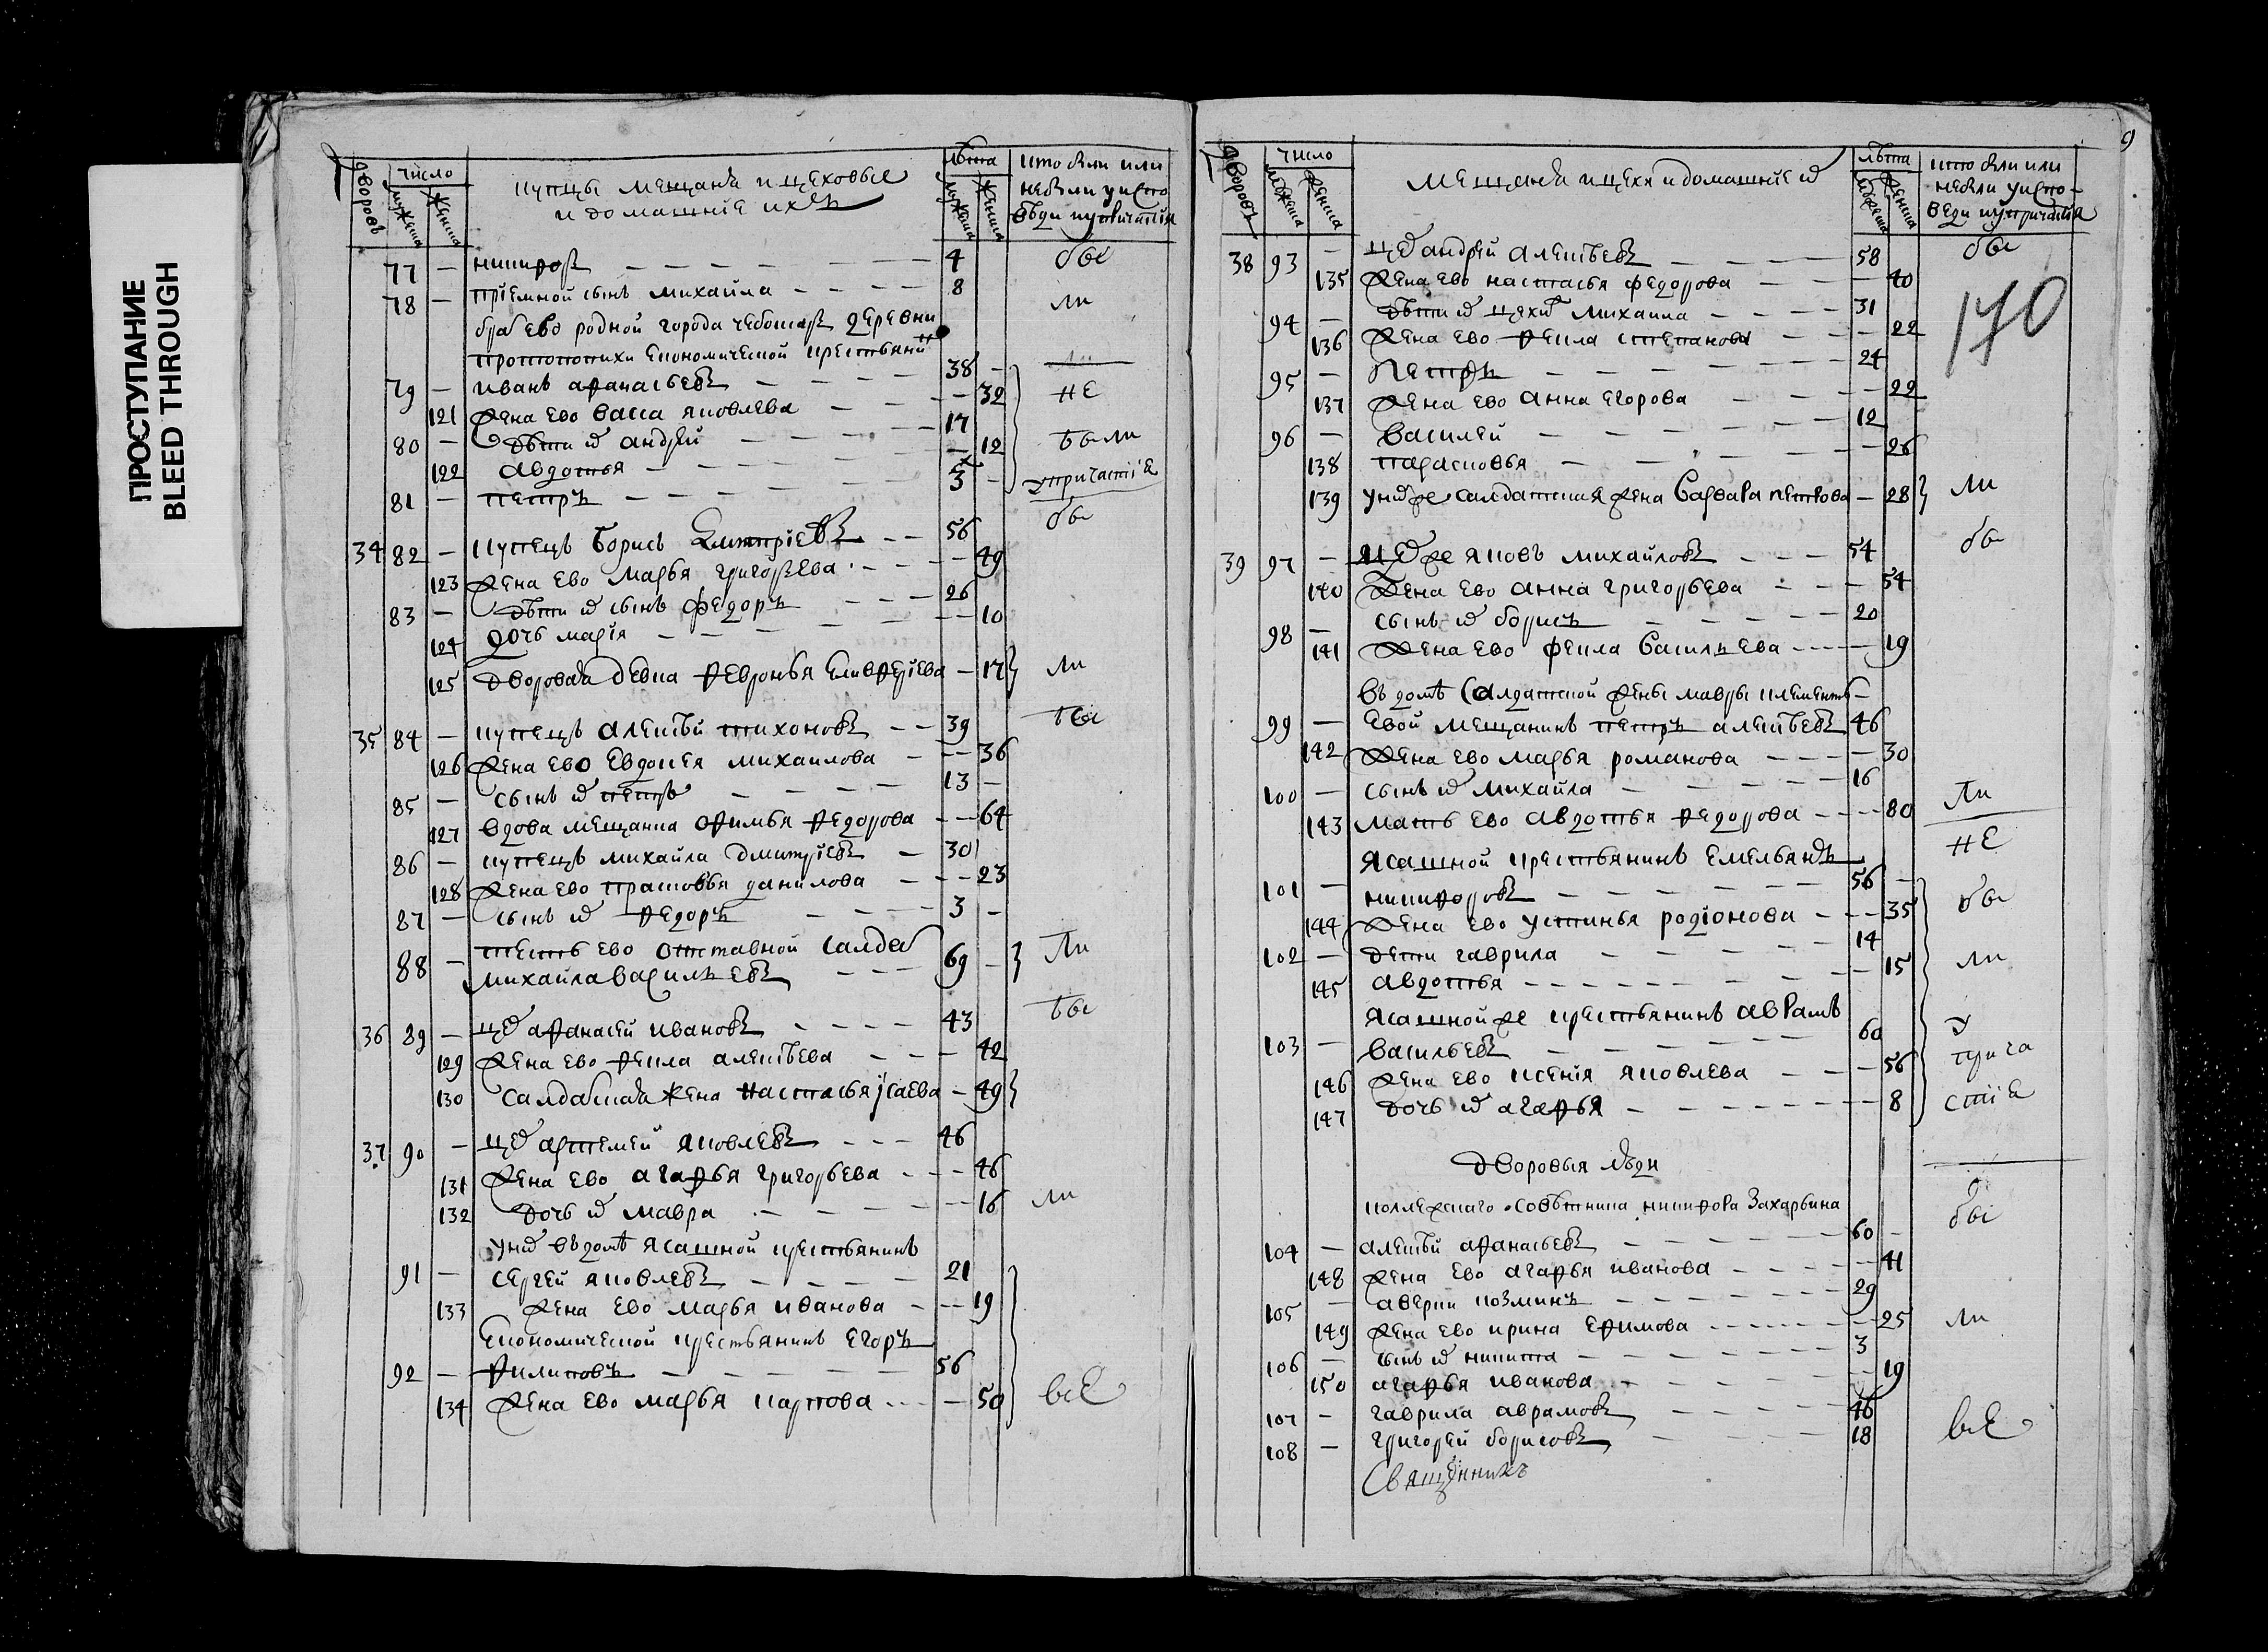 ПРОСТУПАНИЕ
BLEED THROUGH
дворовъ
число
мужеска
женска
купцы мещаня и цеховые
и домашнїе ихъ
лѣта
мужеска
женска
кто были или
небыли уиспо
вѣди ипричастїя
77 — никифоръ — 4 бы
78 — прїемной сынъ михайла — 8 ли
братъ ево родной города чебоксаръ деревни
протопопихи економической крестьянинъ
79 — иванъ афанасьевъ — 38 — не
121 жена ево васса яковлева — 32
80 — дѣти их андрей — 17 были
122 авдотья — 12
81 — петръ — 3 — упричастїе
34 82 — купецъ борисъ дмитрїевъ — 56 бы
123 жена ево марья григорьева — 49
83 — дѣти их сынъ федоръ — 26
124 дочь марїя — 10
125 дворовая девка февронья елевферїева — 17 ли
35 84 — купецъ алексѣй тихоновъ — 39 бы
126 жена ево евдокея михаилова — 36
85 — сынъ их петръ — 13 —
127 вдова мещанка офимья федорова — 64
86 — купецъ михайла дмитрїевъ — 30
128 жена ево прасковья данилова — 23
87 — сынъ их федоръ — 3 —
тесть ево отставной салдатъ
88 — михайла васильевъ — 69 — ли
36 89 — цех афанасей ивановъ — 43 бы
129 жена ево фекла алексѣева — 42
130 салдатская жена настасья исаева — 49
37 90 — цех артемей яковлевъ — 46
131 жена ево агафья григорьева — 46
132 дочь их мавра — 16 ли
уних въ домѣ ясашной крестьянинъ
91 — сергей яковлевъ — 21
133 жена ево марья иванова — 19
економической крестьянинъ егоръ
92 — филиповъ — 56
134 жена ево марья карпова — 50 все
9
дворовъ
число
мужеска
женска
мещаня и цехи и домашнїе их
лѣта
мужеска
женска
кто были или
небыли уиспо-
веди ипричастїя
38 93 — цех андрей алексѣевъ — 58 бы
135 жена ево настасья федорова — 40
170
94 — дѣти их цехи михаила — 31
136 жена ево фекла степанова — 22
95 — петръ — 24
137 жена ево анна егорова — 22
96 — василей — 12
138 парасковья — 26
139 уних же салдатская жена варвара петрова — 28 ли
39 97 — цех же яковъ михайловъ — 54 бы
140 жена ево анна григорьева — 54
98 — сынъ их борисъ — 20
141 жена ево фекла васильева — 19
въ домѣ салдатской жены мавры клементь-
99 — евой мещанинъ петръ алексѣевъ 46
142 жена ево марья романова — 30
100 — сынъ их михайла — 16
143 мать ево авдотья федорова — 80 ли
ясашной крестьянинъ емельянъ не
101 — никифоровъ — 56 —
144 жена ево устинья родїонова — 35 бы
102 — дети гаврила — 14
145 авдотья — 15 ли
ясашной же крестьянинъ аврамъ
103 — васильевъ — 60 у
146 жена ево ксенїя яковлева — 56 прича
147 дочь их агафья — 8 стїе
дворовыя люди
коллежскаго совѣтника никифора захарьина бы
104 — алексѣй афанасьевъ — 60 —
148 жена ево агафья иванова — 41
105 — аверки козминъ — 29
149 жена ево ирина ефимова — 25 ли
106 — сынъ их никита — 3
150 агафья иванова — 19
107 — гаврила аврамовъ — 46
108 — григорей борисовъ — 18 все
Священникъ